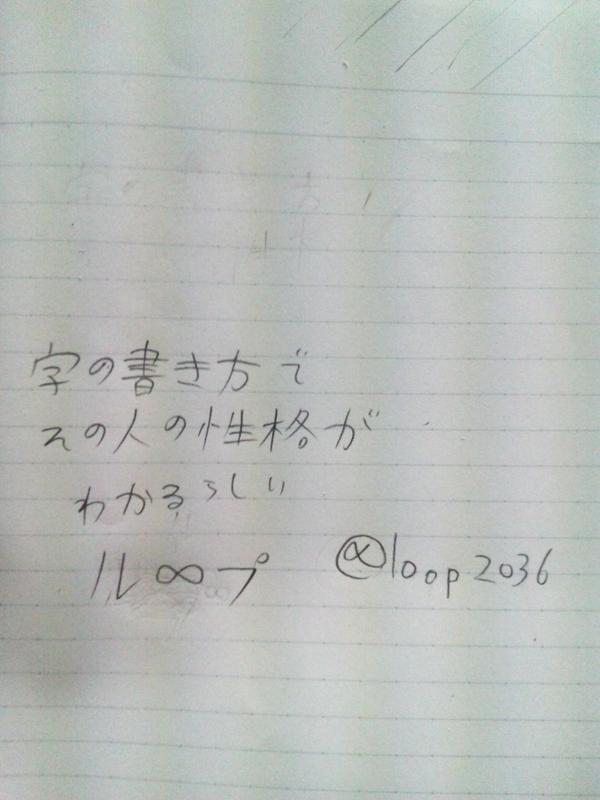 字の書き方で
その人の性格が
わかるらしい
ル∞プ @loop2036